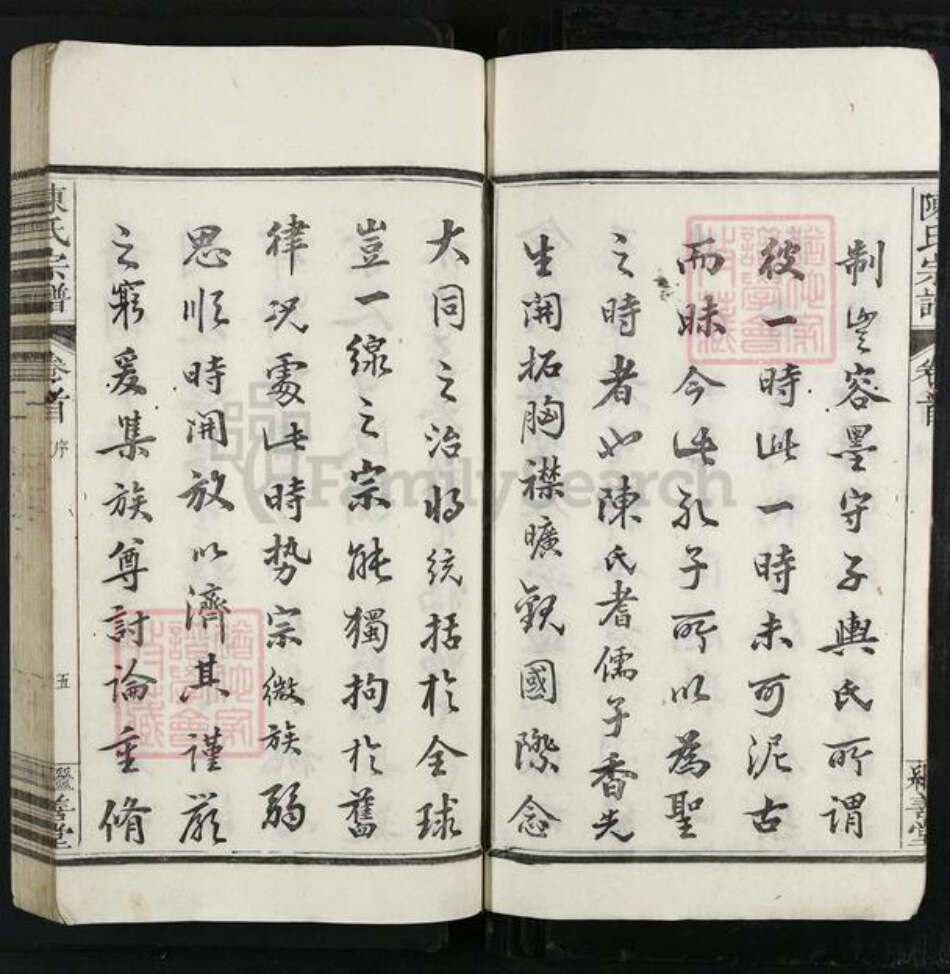 制豈容墨守子輿氏所謂
彼一時此一時未可泥古
而昧今此孔子所以為聖
之時者也陳氏耆儒子香先
生開拓胸襟曠觀國際念
大同之治將統括於全球
豈一線之宗能獨拘於舊
律況處此時势宗微族弱
思順時開放以濟其謹嚴
之窮爰集族尊討論重脩
陳氏宗譜
卷首
序
五
善堂
FamilySearch